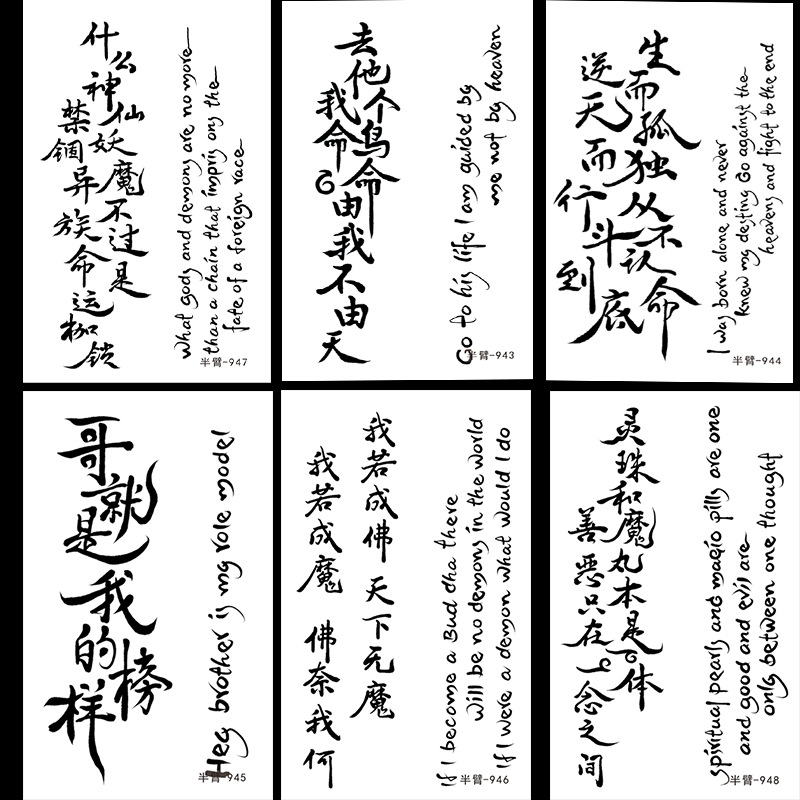 什么神仙妖魔不过是
禁锢异族命运枷锁
what gods and demons are no more
than a chain that impris ons the
fate of a foreign race
半臂-947
去他个鸟命
我命由我不由天
Go to his life I am guided by
me not by heaven
半臂-943
生而孤独从不认命
逆天而行斗到底
I was born alone and never
knew my destiny Go against the
heavens and fight to the end
半臂-944
哥就是我的榜样
Hey brother is my role model
半臂-945
我若成佛 天下无魔
我若成魔 佛奈我何
If I become a Bud dha there
will be no demons in the world
If I were a demon what would I do
半臂-946
灵珠和魔丸本是一体
善恶只在一念之间
spiritual pearls and magio pills are one
and good and evil are
only between one thought
半臂-948